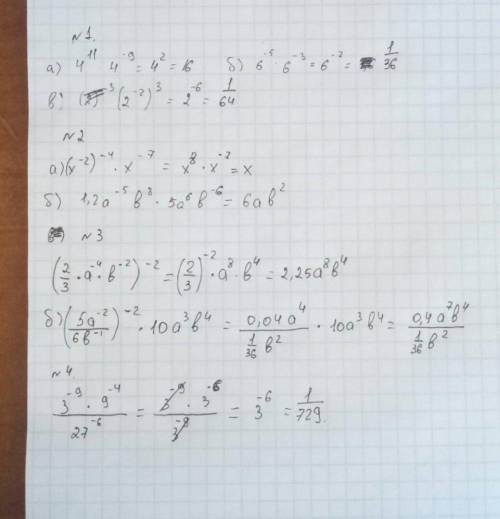 №1.
а) 4¹¹ · 4⁻⁹ = 4² = 16 б) 6⁻⁵ · 6⁻³ = 6⁻² = 1/36
в) (2⁻²)³ = 2⁻⁶ = 1/64
№2
а) (x⁻²)⁻⁴ · x⁻⁷ = x⁸ · x⁻⁷ = x
б) 1,2a⁻⁵ b⁸ · 5a⁶ b⁻⁶ = 6ab²
№3
(2/3 · a⁻⁴ · b⁻²)⁻² = (2/3)⁻² · a⁸ · b⁴ = 2,25a⁸b⁴
б) (5a⁻²/6b⁻¹)⁻² · 10a³b⁴ = 0,04a⁴/(1/36 b²) · 10a³b⁴ = 0,4a⁷b⁴/(1/36 b²)
№4
3⁻⁹ · 9⁻⁴/27⁻⁶ = 3⁻⁹ · 3⁻⁶/3⁻⁹ = 3⁻⁶ = 1/729.